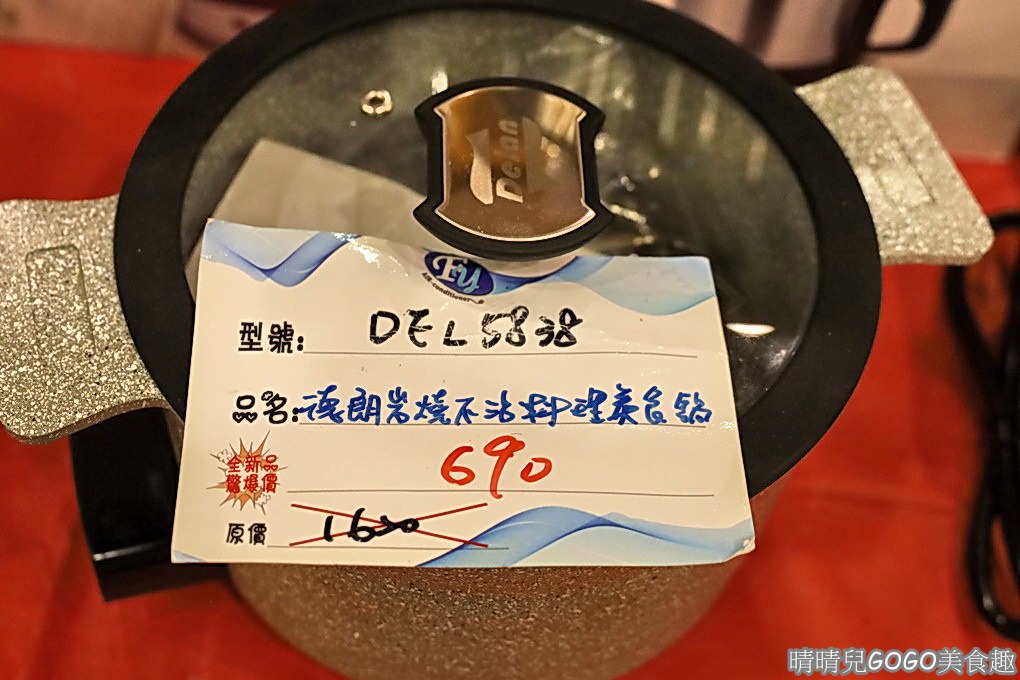 Delan
Fy
AIR-conditioner
型號: DEL5838
品名: 德朗岩燒不沾料理美食鍋
全新品
驚爆價 690
原價 1680
晴晴兒GOGO美食趣